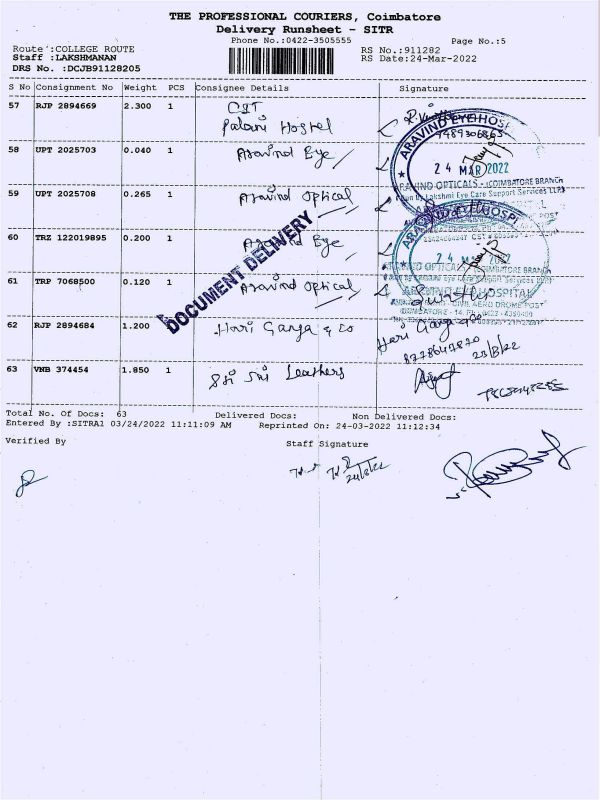 THE PROFESSIONAL COURIERS, Coimbatore
Delivery Runsheet - SITR
Phone No.:0422-3505555
Page No.:5
Route :COLLEGE ROUTE
RS No.:911282
Staff :LAKSHMANAN
RS Date:24-Mar-2022
DRS No. :DCJB91128205
S No Consignment No Weight PCS Consignee Details Signature
57 RJP 2894669 2.300 1 CIT
Palani Hostel
9489306865
58 UPT 2025703 0.040 1 Aravind Eye
ARAVIND EYE HOSPI
24 MAR 2022
59 UPT 2025708 0.265 1 Aravind Optical
ARAVIND OPTICALS - COIMBATORE BRANCH
Lakshmi Eye Care Support Services LLP
60 TRZ 122019895 0.200 1 Aravind Eye
24 MAR 2022
61 TRP 7068500 0.120 1 Aravind Optical
COIMBATORE BRANCH
EYE HOSPITAL
DOCUMENT DELIVERY
62 RJP 2894684 1.200 Hari Ganga & Co
Hari Ganga & Co
63 VNB 374454 1.850 1 Sri Sri Leathers
Total No. Of Docs: 63 Delivered Docs: Non Delivered Docs:
Entered By :SITRA1 03/24/2022 11:11:09 AM Reprinted On: 24-03-2022 11:12:34
Verified By Staff Signature